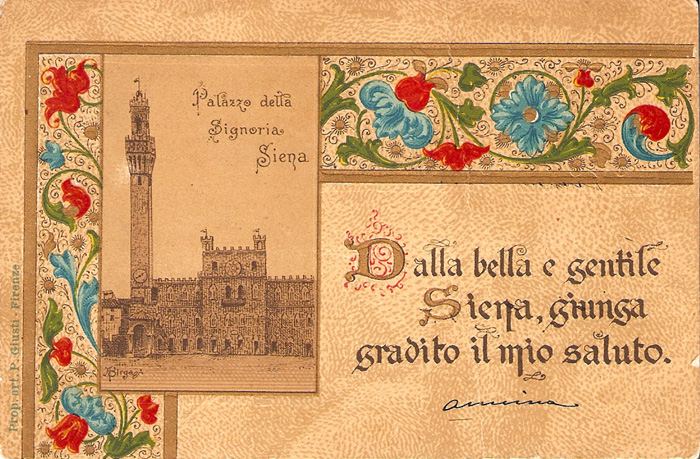 Palazzo della
Signoria
Siena
Dalla bella e gentile
Siena, giunga
gradito il mio saluto.
Prop. art. P. Giusti, Firenze